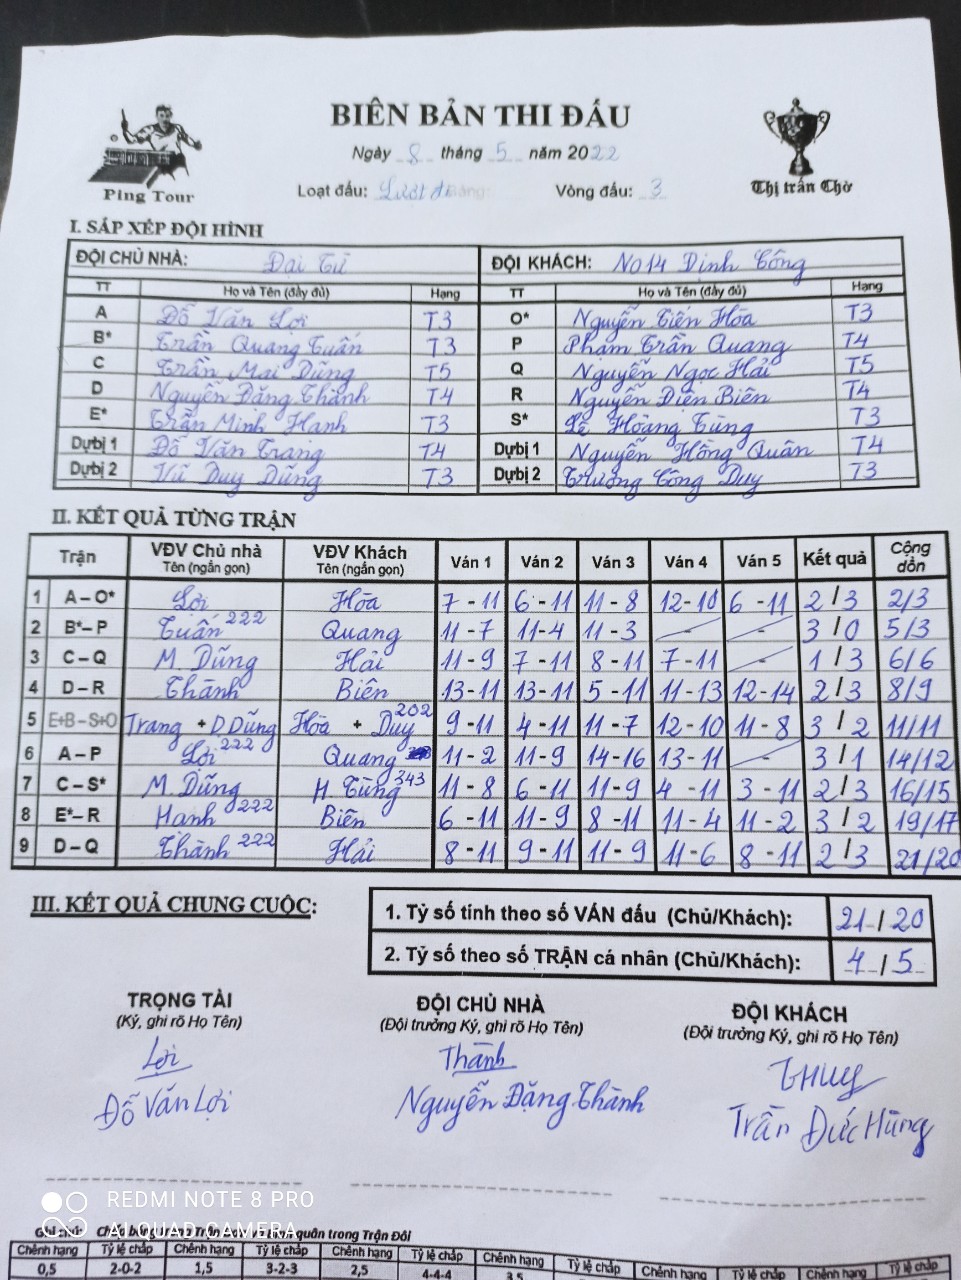 BIÊN BẢN THI ĐẤU
Ngày 8 tháng 5 năm 2022
Ping Tour
Loạt đấu: Lượt đi Bảng: Vòng đấu: 3
Thị trấn Chờ
I. SẮP XẾP ĐỘI HÌNH
ĐỘI CHỦ NHÀ: Đại Từ ĐỘI KHÁCH: NO14 Định Công
TT Họ và Tên (đầy đủ) Hạng TT Họ và Tên (đầy đủ) Hạng
A Đỗ Văn Lợi T3 O* Nguyễn Tiến Hóa T3
B* Trần Quang Tuấn T3 P Phạm Trần Quang T4
C Trần Mai Dũng T5 Q Nguyễn Ngọc Hải T5
D Nguyễn Đăng Thành T4 R Nguyễn Điện Biên T4
E* Trần Minh Hanh T3 S* Lê Hoàng Tùng T3
Dựbị 1 Đỗ Văn Trang T4 Dựbị 1 Nguyễn Hồng Quân T4
Dựbị 2 Vũ Duy Dũng T3 Dựbị 2 Trương Công Duy T3
II. KẾT QUẢ TỪNG TRẬN
Trận VĐV Chủ nhà Tên (ngắn gọn) VĐV Khách Tên (ngắn gọn) Ván 1 Ván 2 Ván 3 Ván 4 Ván 5 Kết quả Cộng dồn
1 A – O* Lợi Hóa 7 - 11 6 - 11 11 - 8 12-10 6 - 11 2 / 3 2/3
2 B*– P Tuấn 222 Quang 11 - 7 11-4 11 - 3 - - 3 / 0 5/3
3 C – Q M. Dũng Hải 11 - 9 7 - 11 8 - 11 7 - 11 - 1 / 3 6/6
4 D – R Thành Biên 13 - 11 13 - 11 5 - 11 11 - 13 12 - 14 2 / 3 8/9
5 E+B – S+O Trang + D.Dũng Hóa + Duy 202 9 - 11 4 - 11 11 - 7 12 - 10 11 - 8 3 / 2 11/11
6 A – P Lợi 222 Quang 11 - 2 11 - 9 14 - 16 13 - 11 - 3 / 1 14/12
7 C – S* M. Dũng H. Tùng 343 11 - 8 6 - 11 11 - 9 4 - 11 3 - 11 2 / 3 16/15
8 E*– R Hanh 222 Biên 6 - 11 11 - 9 8 - 11 11 - 4 11 - 2 3 / 2 19/17
9 D – Q Thành 222 Hải 8 - 11 9 - 11 11 - 9 11 - 6 8 - 11 2 / 3 21/20
III. KẾT QUẢ CHUNG CUỘC:
1. Tỷ số tính theo số VÁN đấu (Chủ/Khách): 21 / 20
2. Tỷ số theo số TRẬN cá nhân (Chủ/Khách): 4 / 5
TRỌNG TÀI ĐỘI CHỦ NHÀ ĐỘI KHÁCH
(Ký, ghi rõ Họ Tên) (Đội trưởng Ký, ghi rõ Họ Tên) (Đội trưởng Ký, ghi rõ Họ Tên)
Lợi Thành
Đỗ Văn Lợi Nguyễn Đặng Thành Trần Đức Hùng
REDMI NOTE 8 PRO
AI QUAD CAMERA
Ghi chú: quân trong Trận Đôi
Chênh hạng Tỷ lệ chấp Chênh hạng Tỷ lệ chấp Chênh hạng Tỷ lệ chấp Chênh hạng Tỷ lệ chấp Chênh hạng Tỷ lệ chấp Chênh hạng Tỷ lệ chấp
0,5 2-0-2 1,5 3-2-3 2,5 4-4-4 3,5